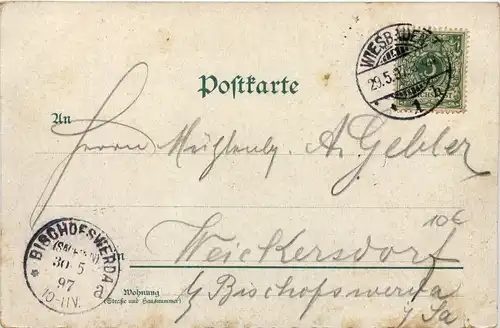 WIESBADEN
29.5.97
1 R
Postkarte
An
Herrn Mühlenb. A. Gebler
106
BISCHOFSWERDA
(SACHSEN)
30 5
97
10-11N.
a
Weickersdorf
b/ Bischofswerda
i/ Sa.
Wohnung
(Straße und Hausnummer)